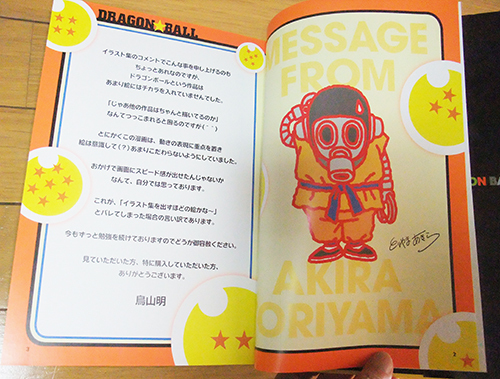 DRAGON BALL
イラスト集のコメントでこんな事を申し上げるのも
ちょっとあれなのですが、
ドラゴンボールという作品は
あまり絵にはチカラを入れていませんでした。
「じゃあ他の作品はちゃんと描いてるのか」
なんてつっこまれると困るのですが(^^)
とにかくこの漫画は、動きの表現に重点を置き
絵は意識して(?)あまりこだわらないようにしていました。
おかげで画面にスピード感が出せたんじゃないか
なんて、自分では思っております。
これが、「イラスト集を出すほどの絵かな〜」
とバレてしまった場合の言い訳であります。
今もずっと勉強を続けておりますのでどうか御容赦ください。
見ていただいた方、特に購入していただいた方、
ありがとうございます。
鳥山明
MESSAGE
FROM
とりやまあきら
AKIRA
TORIYAMA
2
ON BA